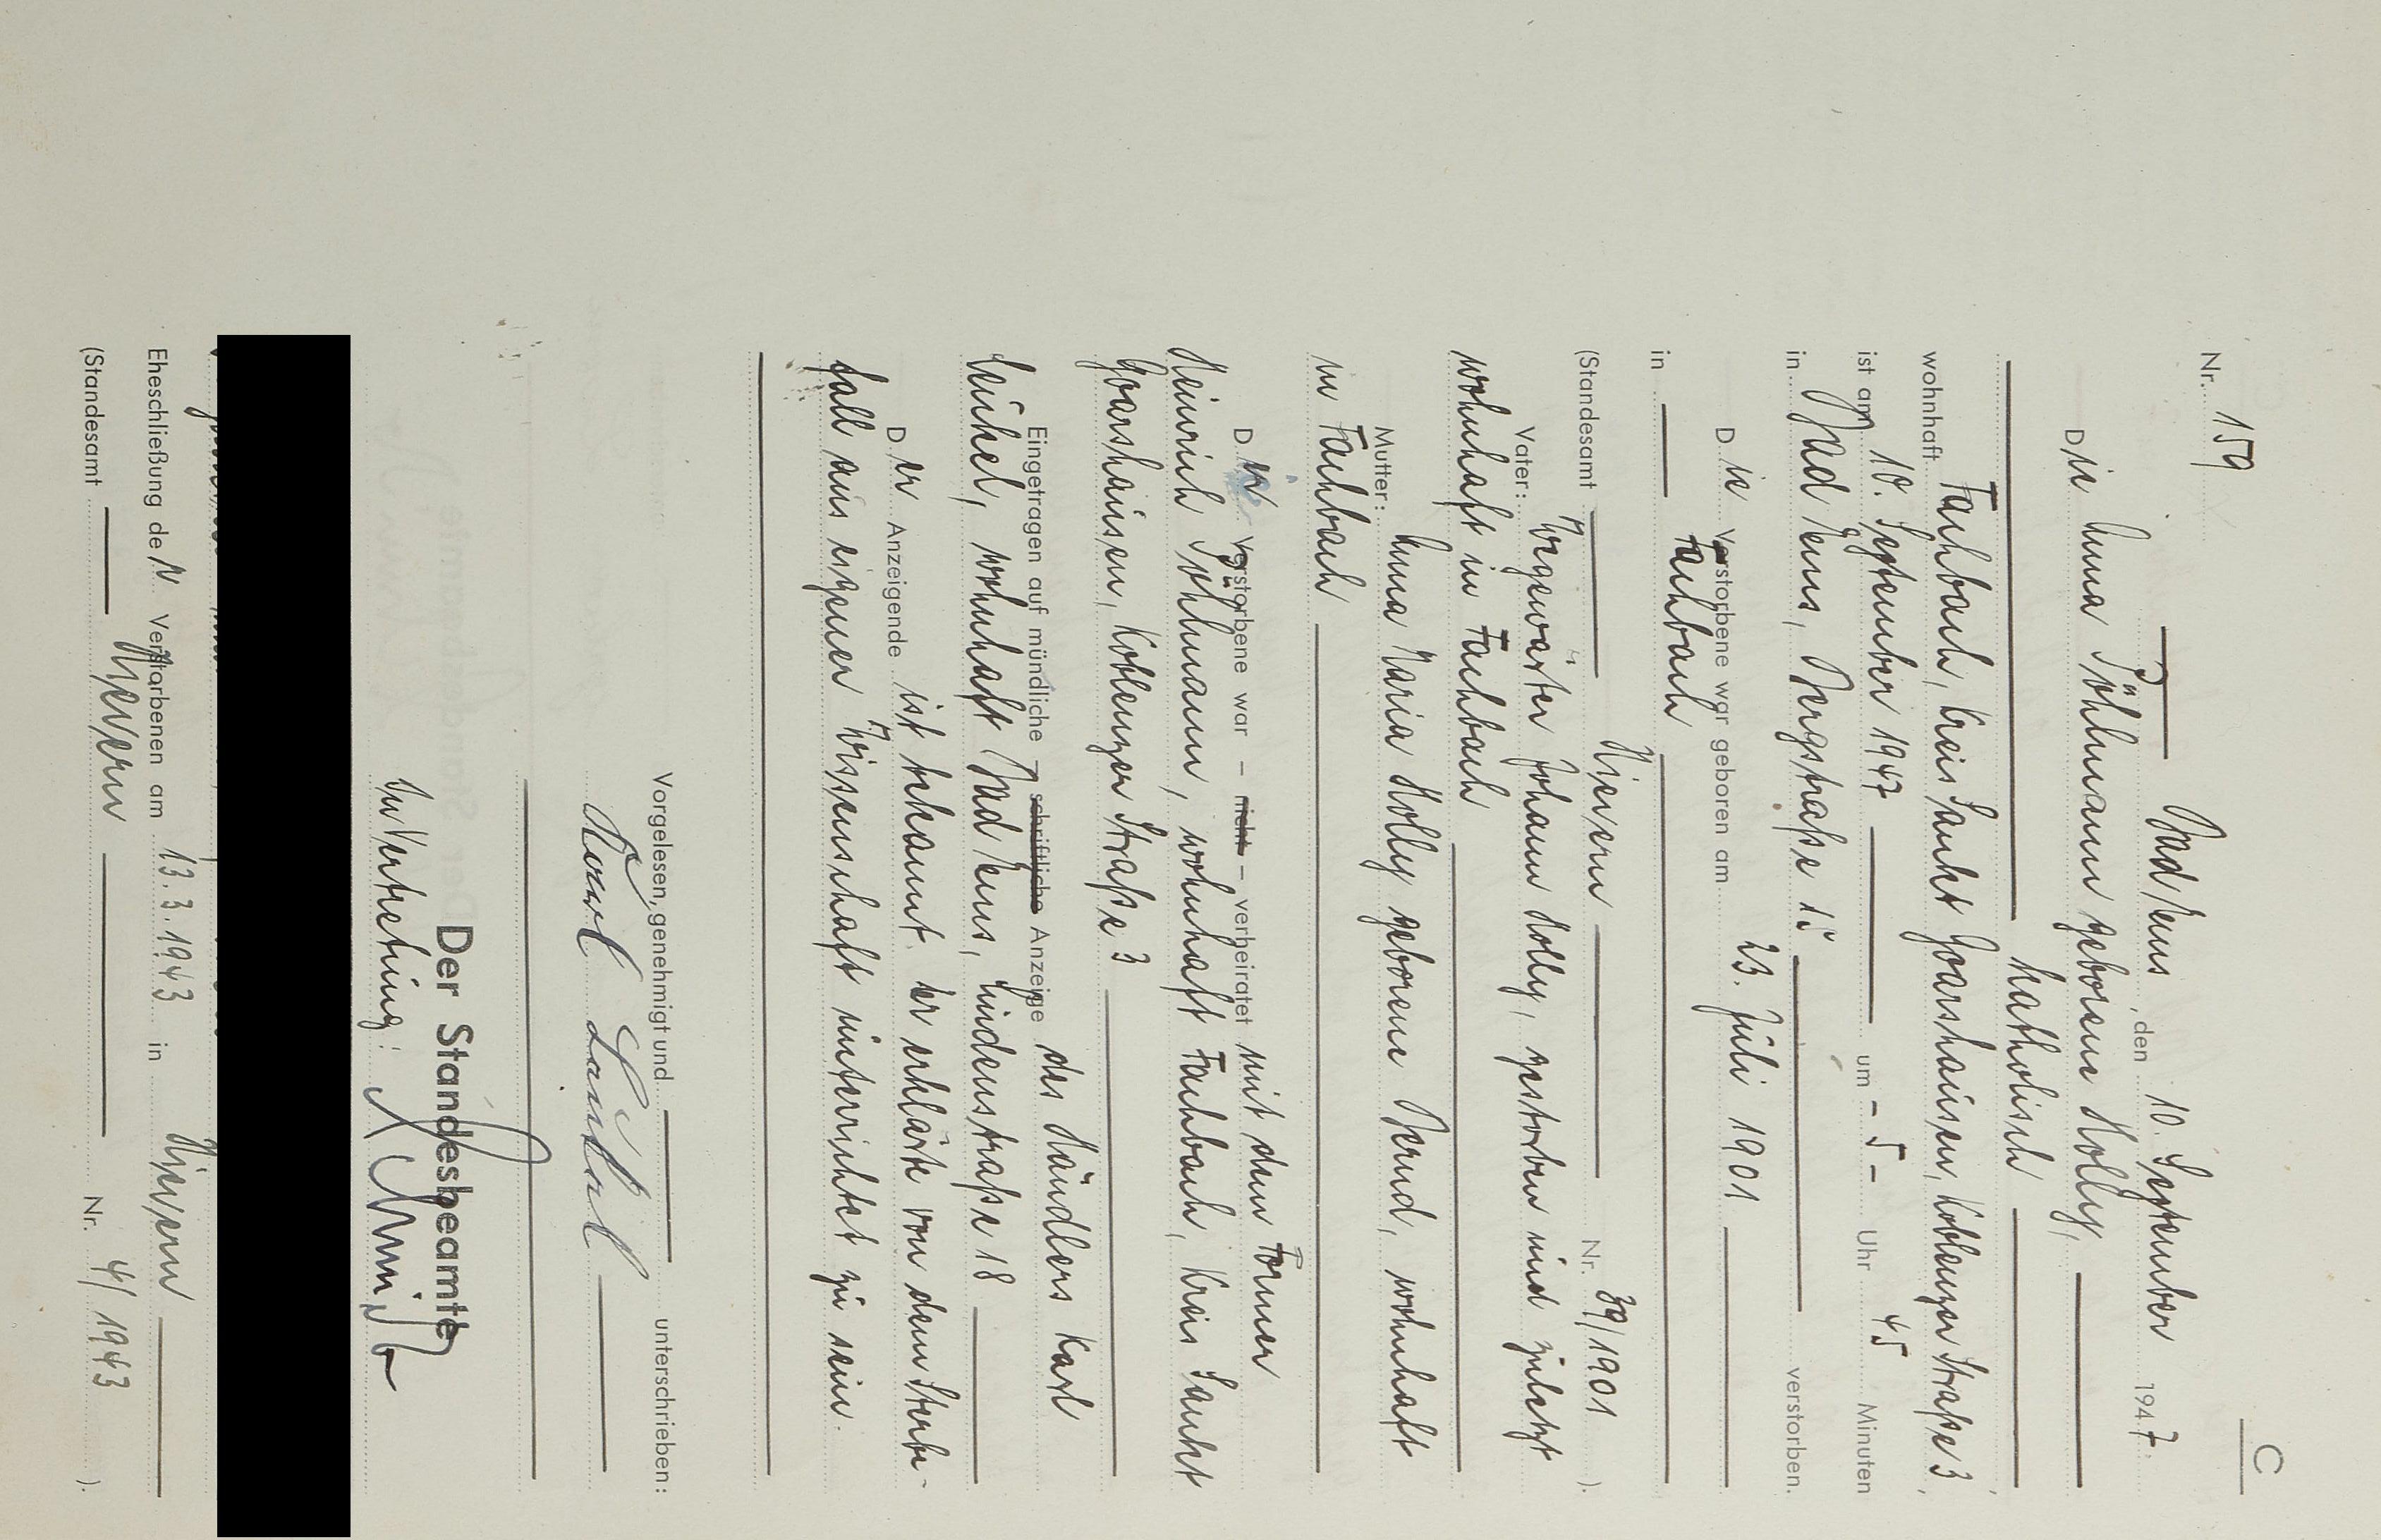 C
Nr. 159
Bad Ems, den 10. September 1947.
Die Anna Pöhlmann geborene Holly,
katholisch
wohnhaft Fachbach, Kreis Sankt Goarshausen, Koblenzer Straße 3
ist am 10. September 1947 um - 5 - Uhr 45 Minuten
in Bad Ems, Bergstraße 15 verstorben.
Die Verstorbene war geboren am 23. Juli 1901
in Fachbach
(Standesamt Nievern Nr. 39/1901).
Vater: Wegewärter Johann Holly, gestorben und zuletzt
wohnhaft in Fachbach
Mutter: Anna Maria Holly geborene Bernd, wohnhaft
in Fachbach
Die Verstorbene war – nicht – verheiratet mit dem Former
Heinrich Pöhlmann, wohnhaft Fachbach, Kreis Sankt
Goarshausen, Koblenzer Straße 3
Eingetragen auf mündliche – schriftliche Anzeige des Händlers Karl
wohnhaft Bad Ems, Lindenstraße 18
Der Anzeigende ist bekannt. Er erklärte von dem Sterbe-
fall aus eigener Wissenschaft unterrichtet zu sein.
Vorgelesen, genehmigt und unterschrieben:
Karl
Der Standesbeamte
In Vertretung:
Eheschließung der Verstorbenen am 13.3.1943 in Nievern
(Standesamt Nievern Nr. 4/1943).